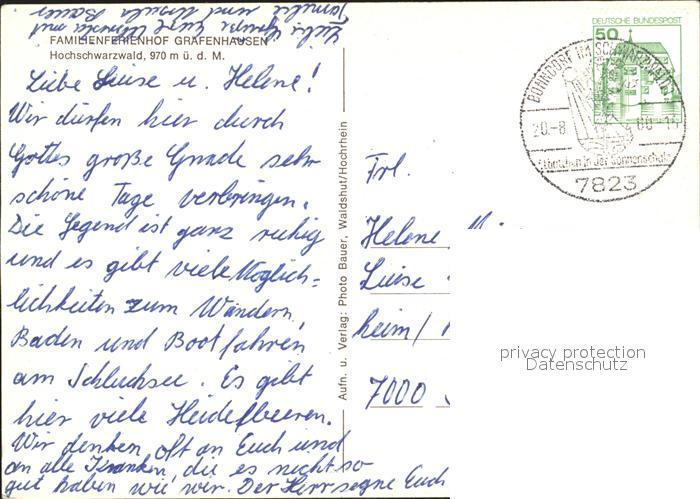 FAMILIENFERIENHOF GRAFENHAUSEN
Hochschwarzwald, 970 m ü. d. M.
Liebe Luise u. Helene!
Wir dürfen hier durch
Gottes große Gnade sehr
schöne Tage verbringen.
Die Gegend ist ganz ruhig
und es gibt viele Möglich=
lichkeiten zum Wandern,
Baden und Bootfahren
am Schluchsee. Es gibt
hier viele Heidelbeeren.
Wir denken oft an Euch und
an alle Kranken, die es nicht so
gut haben wie wir. Der Herr segne Euch
Familie und Ursula Bauer
Aufn. u. Verlag: Photo Bauer, Waldshut/Hochrhein
DEUTSCHE BUNDESPOST
50
BONNDORF IM SCHWARZWALD
20.-8
80-15
in der Sonnenschale
7823
Frl.
Helene u.
Luise
heim/
7000
privacy protection
Datenschutz